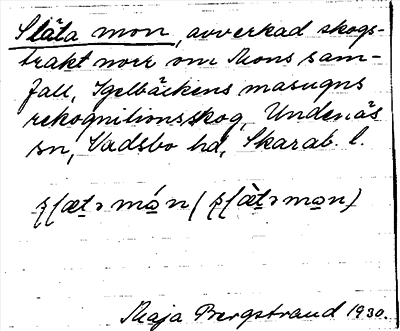 Släta mon, avverkad skogs-
trakt norr om Mons sam-
fall, Igelbäckens masugns
rekognitionsskog, Undenäs
sn, Vadsbo hd, Skarab. l.
Maja Bergstrand 1930.